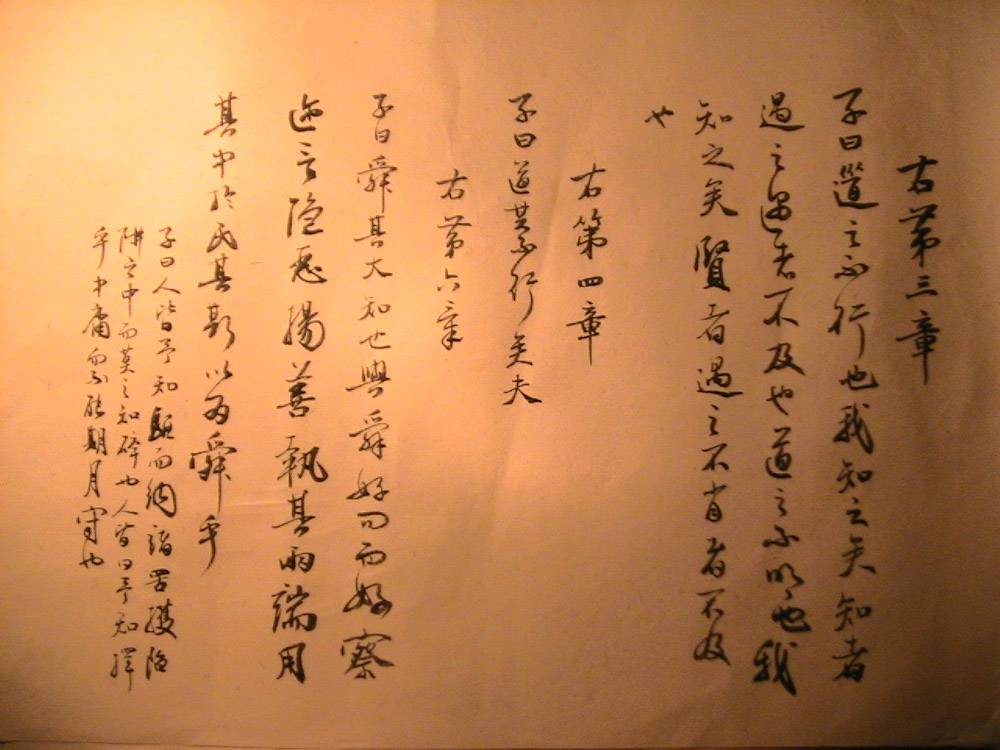 右第三章
子曰道之不行也我知之矣知者
過之愚者不及也道之不明也我
知之矣賢者過之不肖者不及
也
右第四章
子曰道其不行矣夫
右第六章
子曰舜其大知也與舜好問而好察
邇言隱惡揚善執其兩端用
其中於民其斯以為舜乎
子曰人皆予知驅而納諸罟擭陷
阱之中而莫之知辟也人皆曰予知擇
乎中庸而不能期月守也